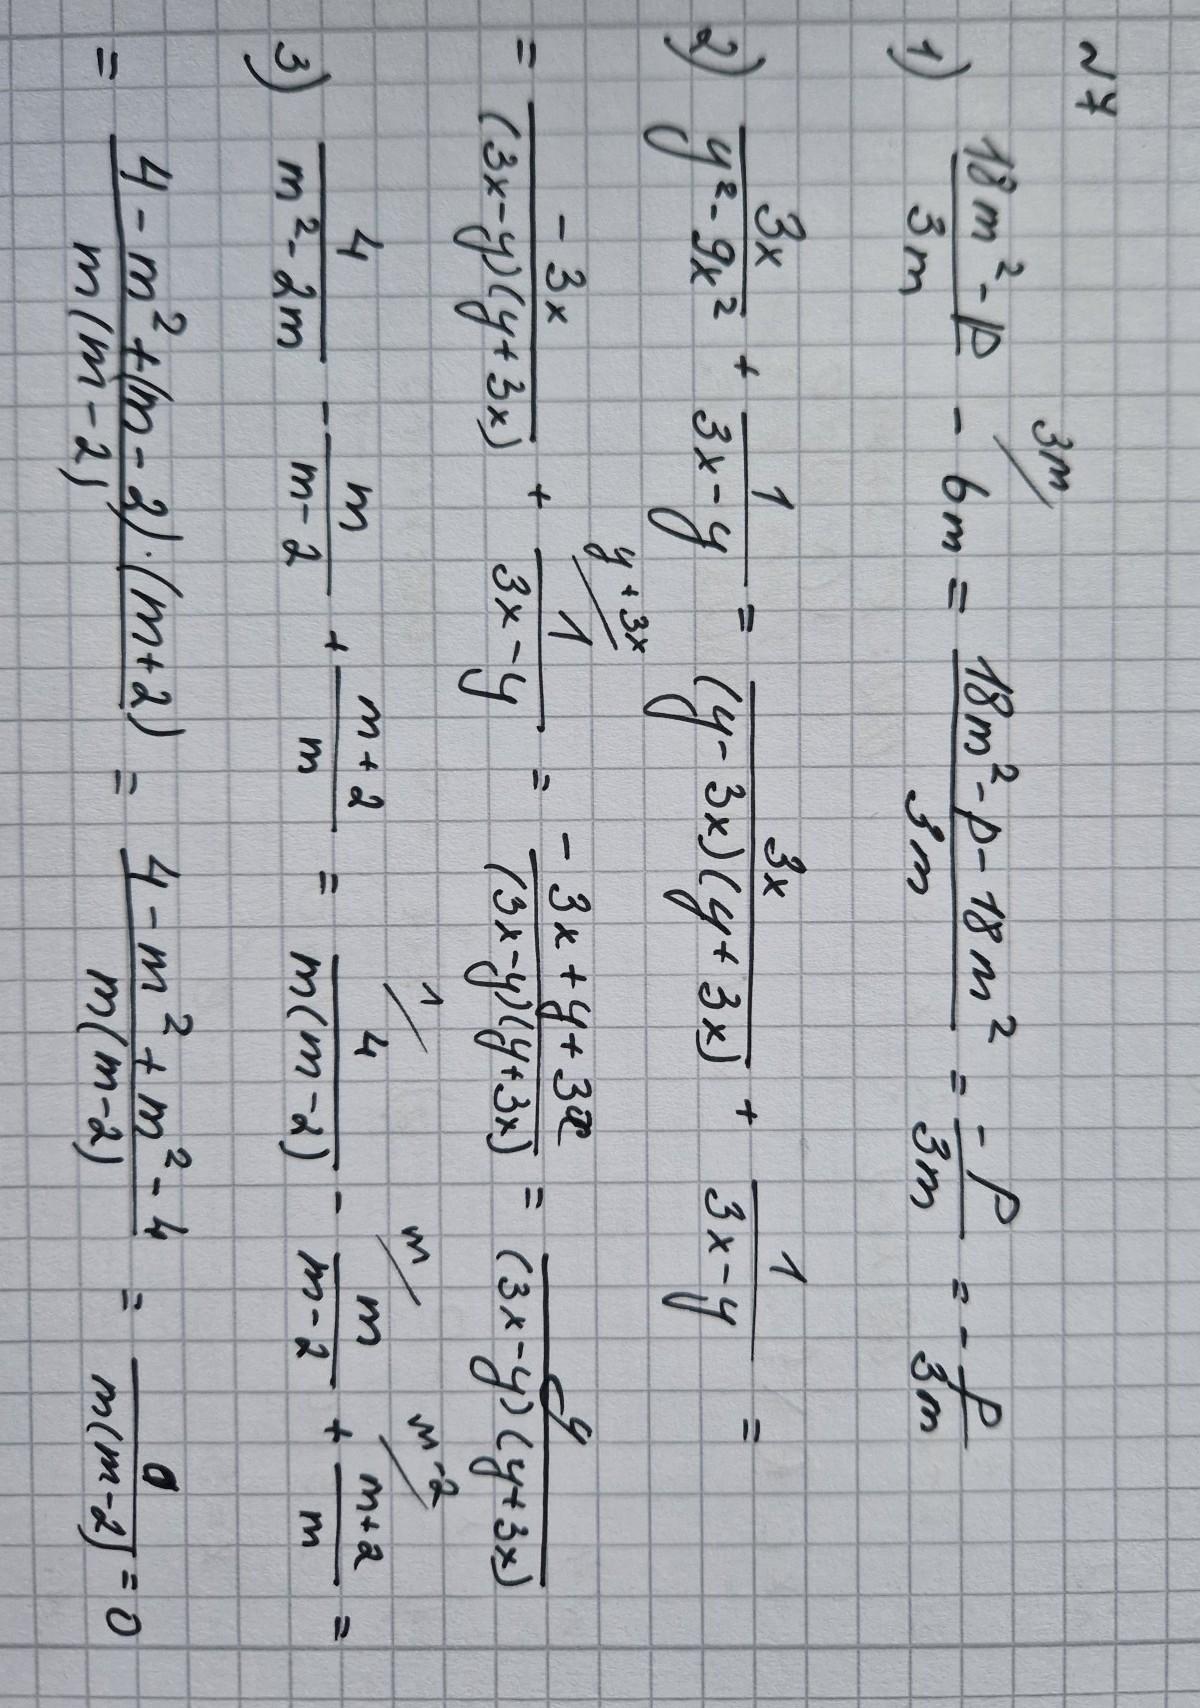 N 7
1) (18m² - p)/(3m) - 6m^{/3m} = (18m² - p - 18m²)/(3m) = (-p)/(3m) = - p/(3m)
2) (3x)/(y² - 9x²) + 1/(3x - y) = (3x)/((y - 3x)(y + 3x)) + 1/(3x - y) =
= (-3x)/((3x - y)(y + 3x)) + 1^{/y + 3x}/(3x - y) = (-3x + y + 3x)/((3x - y)(y + 3x)) = y/((3x - y)(y + 3x))
3) 4/(m² - 2m) - m/(m - 2) + (m + 2)/m = 4^{/1}/(m(m - 2)) - m^{/m}/(m - 2) + (m + 2)^{/m - 2}/m =
= (4 - m² + (m - 2) · (m + 2))/(m(m - 2)) = (4 - m² + m² - 4)/(m(m - 2)) = 0/(m(m - 2)) = 0